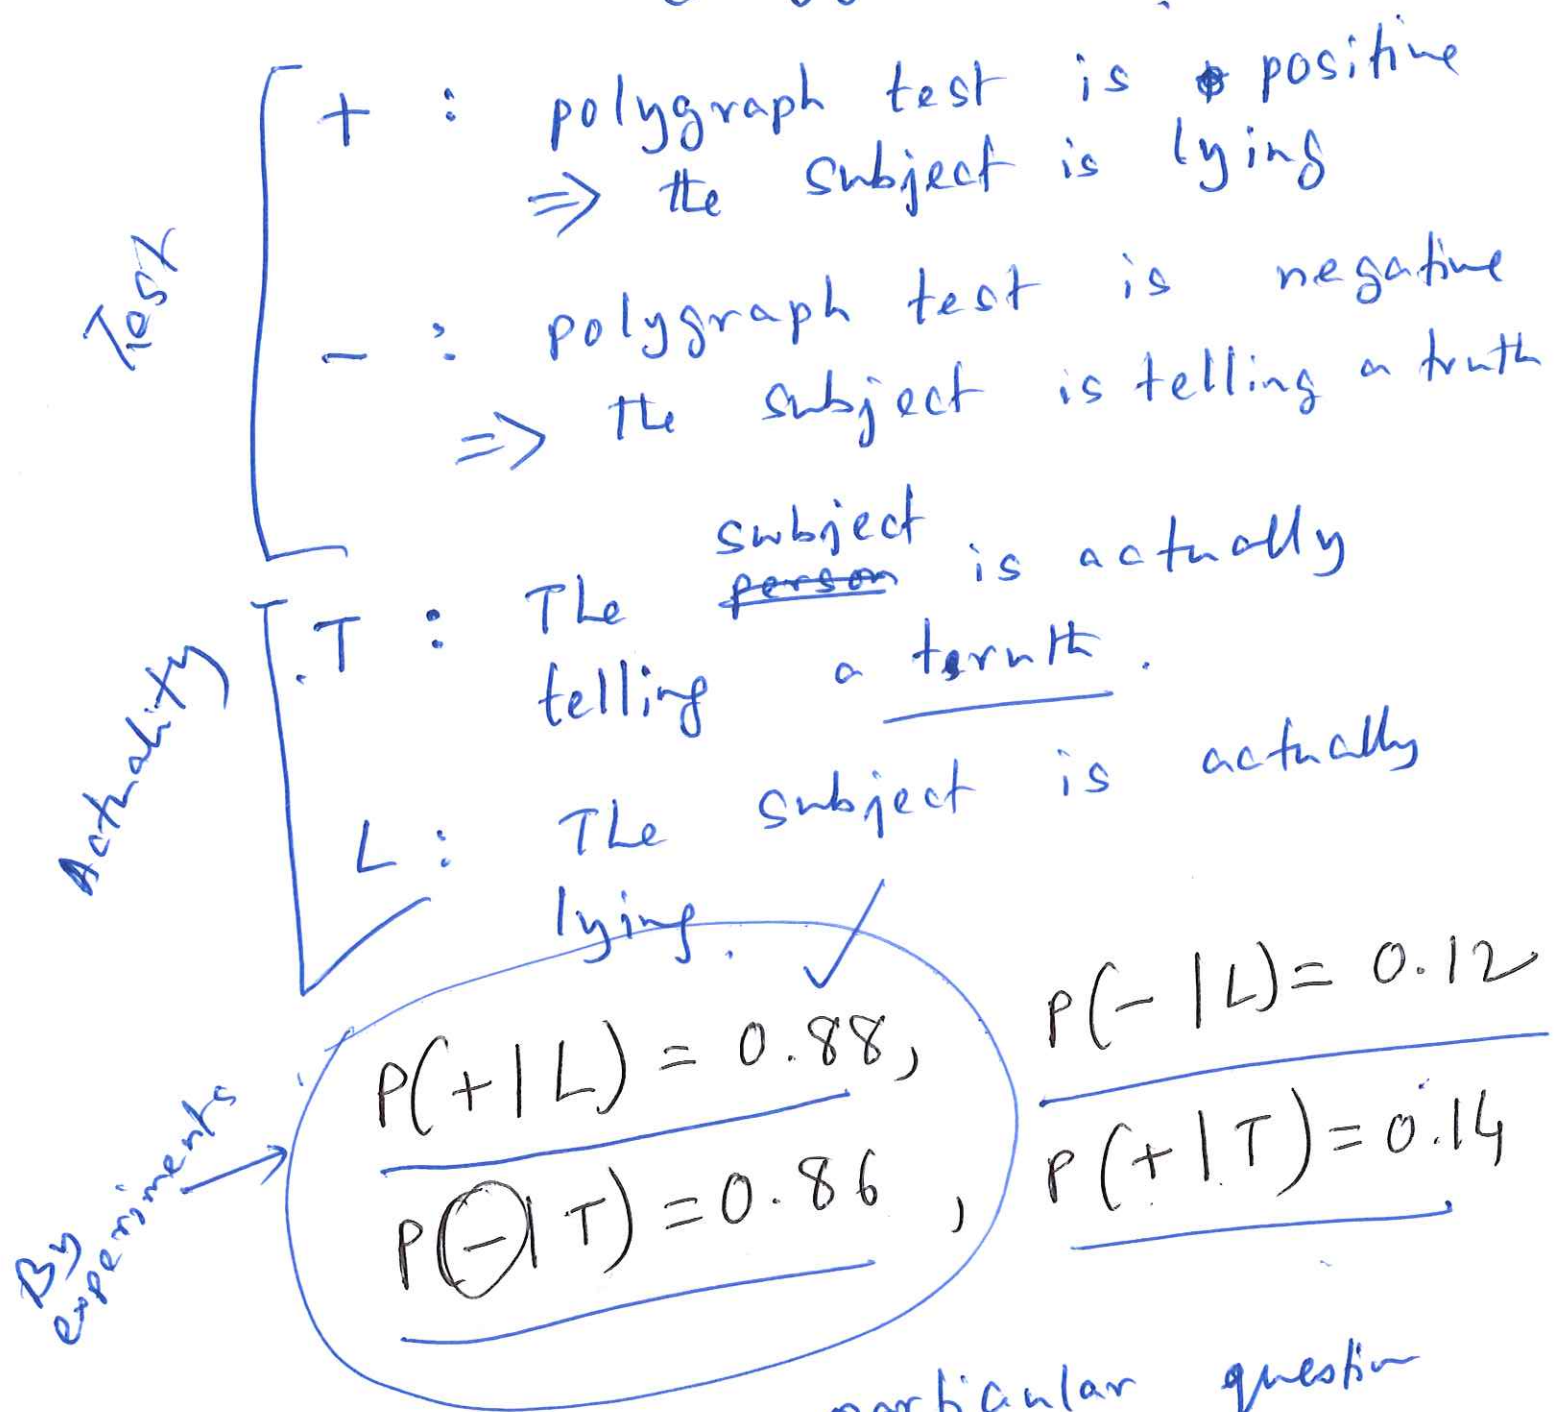 Test
+ : polygraph test is positive
=> the subject is lying
- : polygraph test is negative
=> the subject is telling a truth
Actuality
subject
T : The person is actually
telling a truth.
L : The subject is actually
lying.
By experiments →
P(+|L) = 0.88, P(-|L) = 0.12
P(-|T) = 0.86, P(+|T) = 0.14
particular question